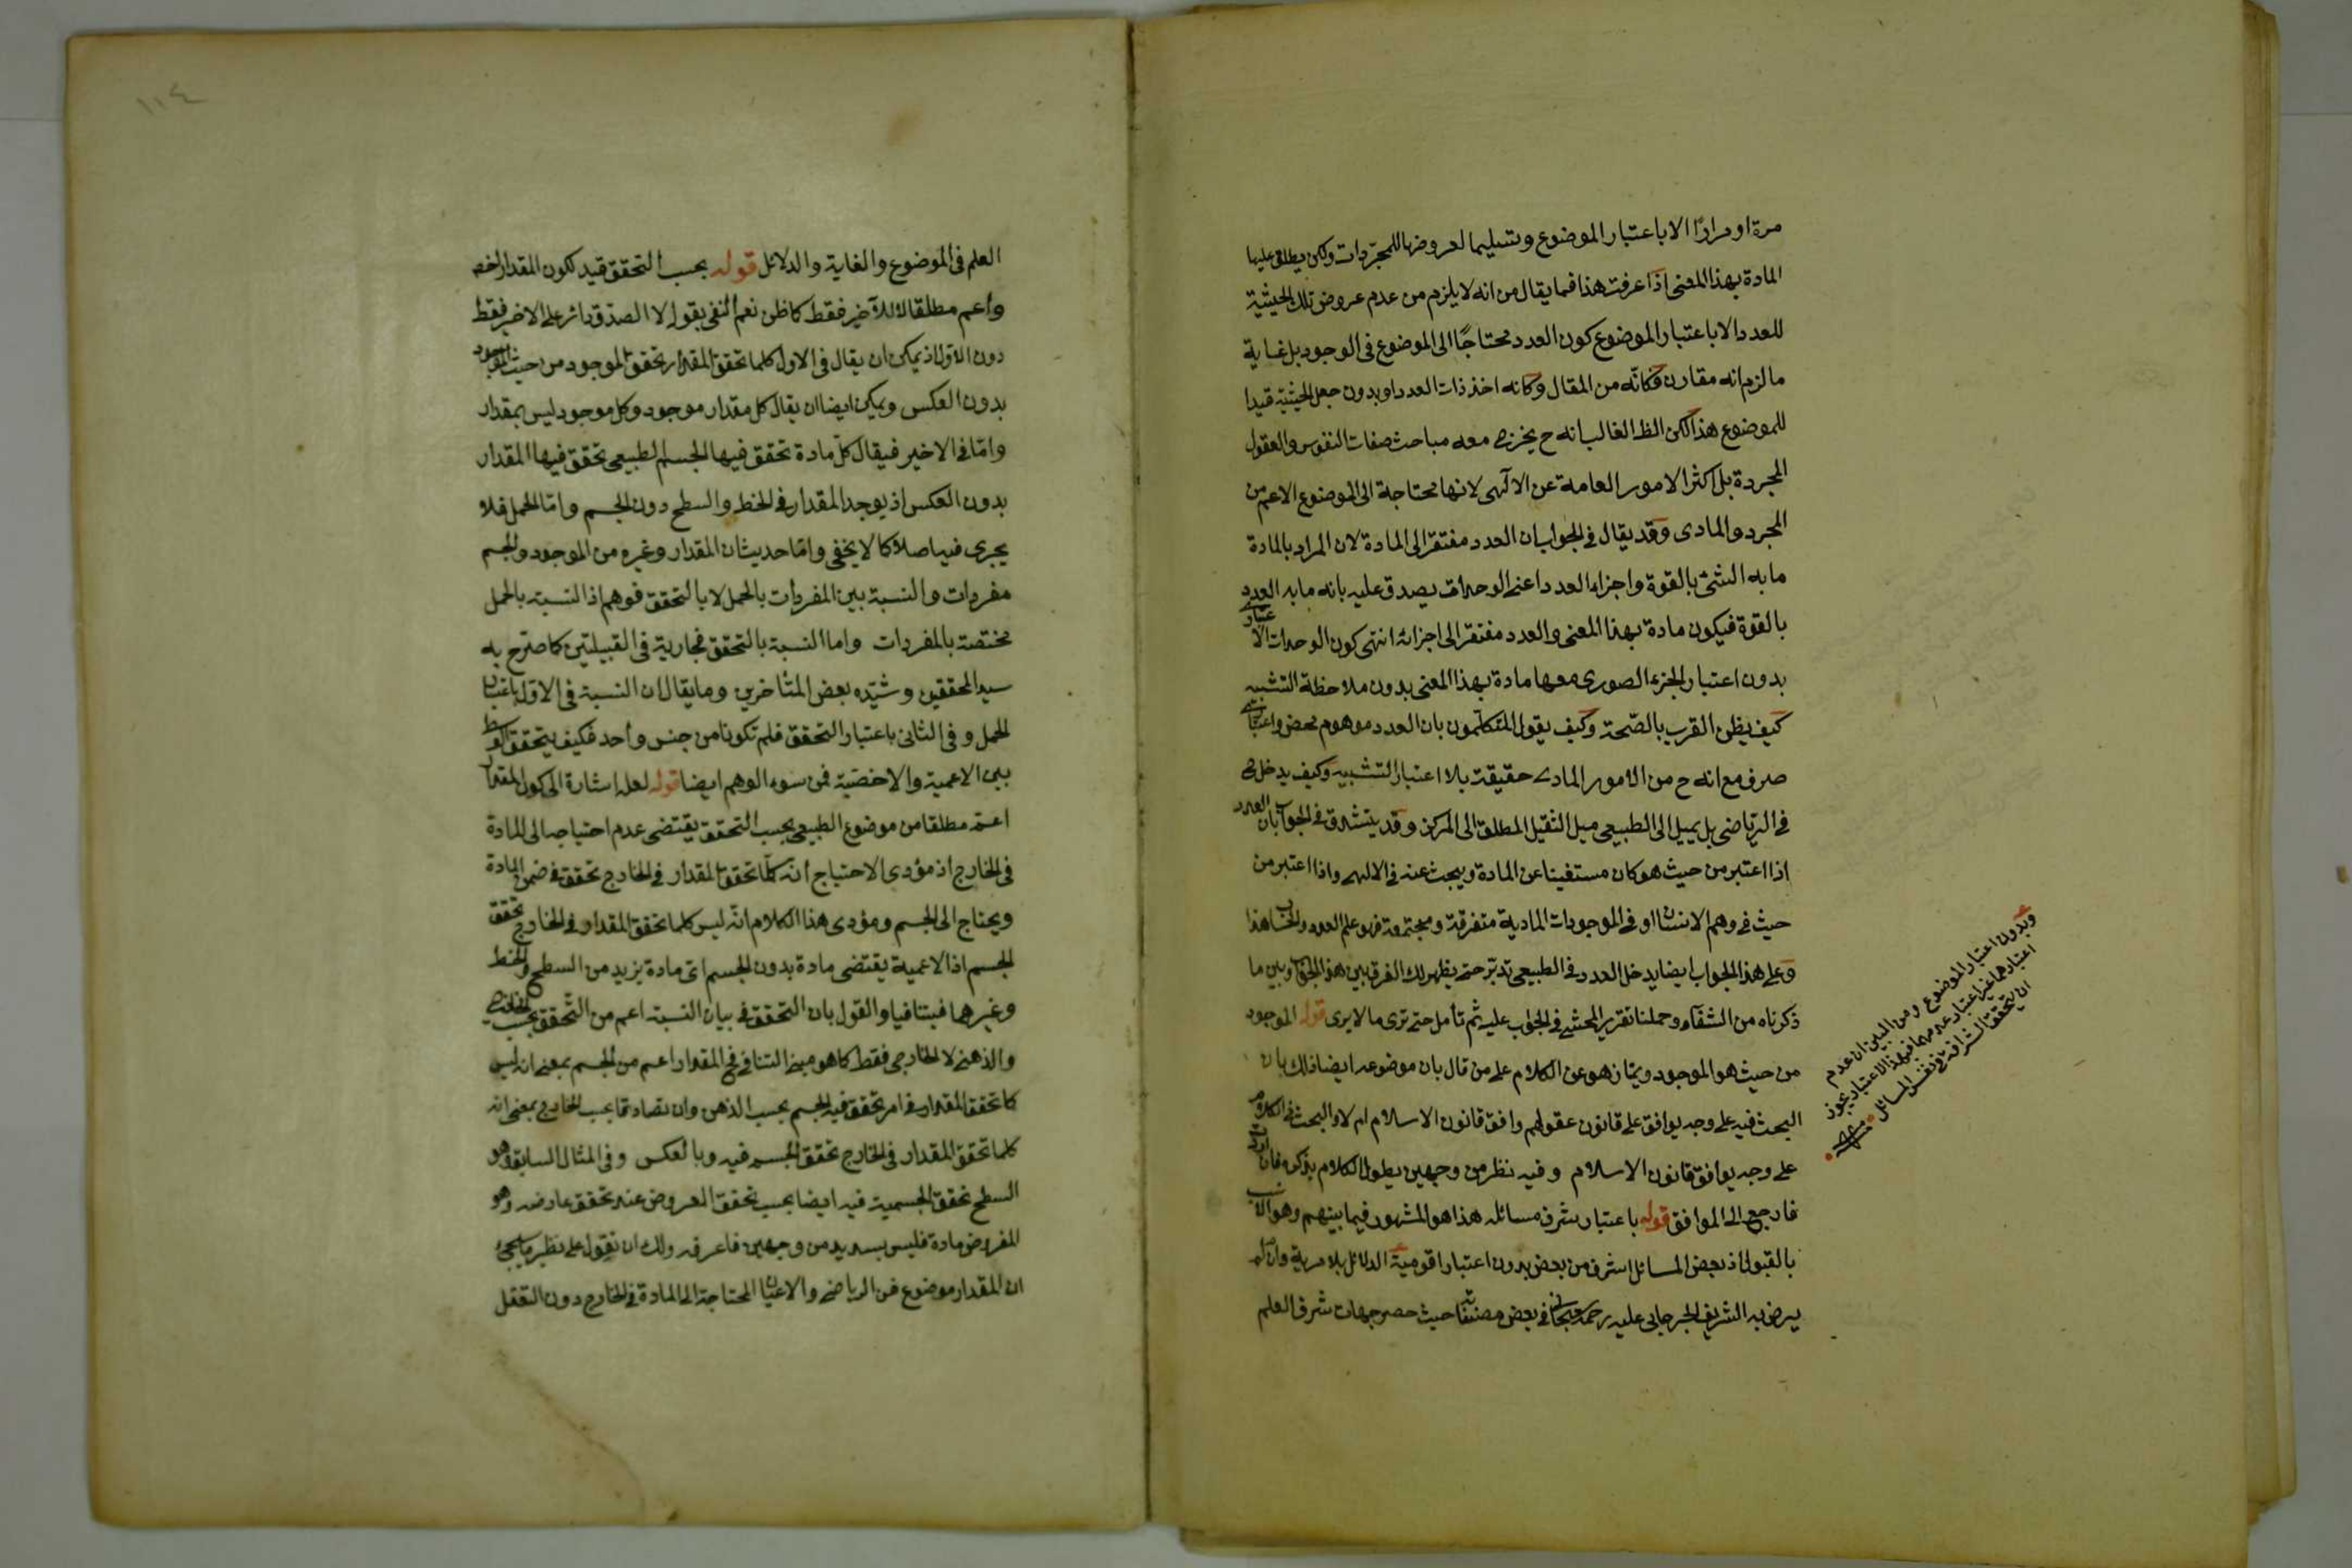 مرة او مرارًا الا باعتبار الموضوع وتسليما لعروضها للمجرّدات ولكن يطلق عليها
المادة بهذا المعنى اذا عرفت هذا فما يقال من انه لا يلزم من عدم عروض تلك الحيثية
للعدد الا باعتبار الموضوع كون العدد محتاجًا الى الموضوع فى الوجود بل غاية
ما لزم انه مقارن فكانّه من المقال وكانه اخذ ذات العدد او بدون جعل الحيثية قيدا
للموضوع هذا لكن الظ الغالب انه ح يخرج معه مباحث صفات النفوس والعقول
المجردة بل اكثر الامور العامة عن الآلهى لانها محتاجة الى الموضوع الاعم من
المجرد والمادى وقد يقال فى الجواب ان العدد مفتقر الى المادة لان المراد بالمادة
ما به الشئ بالقوة واجزاء العدد اعنى الوحدات يصدق عليه بانه ما به العدد
بالقوة فيكون مادة بهذا المعنى والعدد مفتقر الى اجزائه انتهى كون الوحدات الا
بدون اعتبار الجزء الصورى معها مادة بهذا المعنى بدون ملاحظة التشبيه
كيف يظن القرب بالصّحة وكيف يقول المتكلّمون بان العدد موهوم محض واعتبا
صرف مع انه ح من الامور المادى حقيقة بلا اعتبار التشبيه وكيف يدخل ح
فى الرياضى بل يميل الى الطبيعى ميل الثقيل المطلق الى المركز وقد يتشدق فى الجواب بان العدد
اذا اعتبر من حيث هو كان مستغنيا عن المادة ويبحث عنه فى الالهى واذا اعتبر من
حيث فى وهم الانسان او فى الموجودات المادية متفرقة ومجتمعة فهو علم العدد والحساب هذا
وعلى هذا الجواب ايضا يدخل العدد فى الطبيعى تدبّر حتى يظهر لك الفرق بين هذا الجواب وبين ما
ذكرناه من الشفاء وحملنا تقرير المحشى فى الجواب عليه ثم تأمل حتى ترى ما لا يرى قوله الموجود
من حيث هو الموجود ويمتاز هو عن الكلام على من قال بان موضوعه ايضا ذلك بان
البحث فيه على وجه يوافق على قانون عقولهم وافق قانون الاسلام ام لا والبحث فى الكلام
على وجه يوافق قانون الاسلام وفيه نظر من وجهين يطول الكلام بذكره فان اردت
فارجع الى المواقف قوله باعتبار شرف مسائله هذا هو المشهور فيما بينهم وهو الانسب
بالقبول اذ بعض المسائل اشرف من بعض بدون اعتبار اقومية الدلائل بلا مرية وان لم
يرض به الشريف الجرجانى عليه رحمة فى بعض مصنفا حيث حصر جهات شرف العلم
وبدون اعتبار الموضوع ومن البين ان عدم
اعتبارهما غير اعتبار عدمهما فبهذا الاعتبار يجوز
ان يتحقق الشرافة فى نفس المسائل
١١٤
العلم فى الموضوع والغاية والدلائل قوله بحسب التحقق قيد لكون المقدار اخص
واعم مطلقا لا للآخير فقط كما ظن نعم النفى بقوله لا الصدق دائر على الاخير فقط
دون الاول اذ يمكن ان يقال فى الاول كلما تحقق المقدار تحقق الموجود من حيث الموجود
بدون العكس ويمكن ايضا ان يقال كل مقدار موجود وكل موجود ليس بمقدار
وامّا فى الاخير فيقال كلّ مادة تحقق فيها الجسم الطبيعى تحقق فيها المقدار
بدون العكس اذ يوجد المقدار فى الخط والسطح دون الجسم وامّا الحمل فلا
يجرى فيه اصلا كما لا يخفى وامّا حديث ان المقدار وغيره من الموجود والجسم
مفردات والنسبة بين المفردات بالحمل لا بالتحقق فوهم اذ النسبة بالحمل
مختصة بالمفردات واما النسبة بالتحقق فجارية فى القبيلتين كما صرّح به
سيد المحققين وشيّده بعض المتأخرين وما يقال ان النسبة فى الاول باعتبار
الحمل وفى الثانى باعتبار التحقق فلم تكونا من جنس واحد فكيف يتحقق
بين الاعمية والاخصيّة فمن سوء الوهم ايضا قوله لعله اشارة الى كون المقدار
اعمّ مطلقا من موضوع الطبيعى بحسب التحقق يقتضى عدم احتياجه الى المادة
فى الخارج اذ مؤدى الاحتياج أنه كلّما تحقق المقدار فى الخارج تحقق فى ضمن المادة
ويحتاج الى الجسم ومؤدى هذا الكلام انّه ليس كلما تحقق المقدار فى الخارج تحقق
الجسم اذ الاعمية يقتضى مادة بدون الجسم اىّ مادة يزيد من السطح والخط
وغيرهما فيتنافيا والقول بان التحقق فى بيان النسبة اعم من التّحقق بحسب الخارج
والذهنى لا الخارجى فقط كما هو مبنى التنافى فح المقدار اعم من الجسم بمعنى انه ليس
كلما تحقق المقدار فى امر تحقق فيه الجسم بحسب الذهن وان تصادقا بحسب الخارج بمعنى انه
كلما تحقق المقدار فى الخارج تحقق الجسم فيه وبالعكس وفى المثال السابق وهو
السطح تحقق الجسمية فيه ايضا بحسب تحقق المعروض عند تحقق عارضه وهو
المفروض مادة فليس بسديد من وجهين فاعرفه ولك ان تقول على نظير ما يجئ
ان المقدار موضوع فن الرياضى والاعيان المحتاجة الى المادة فى الخارج دون التعقل